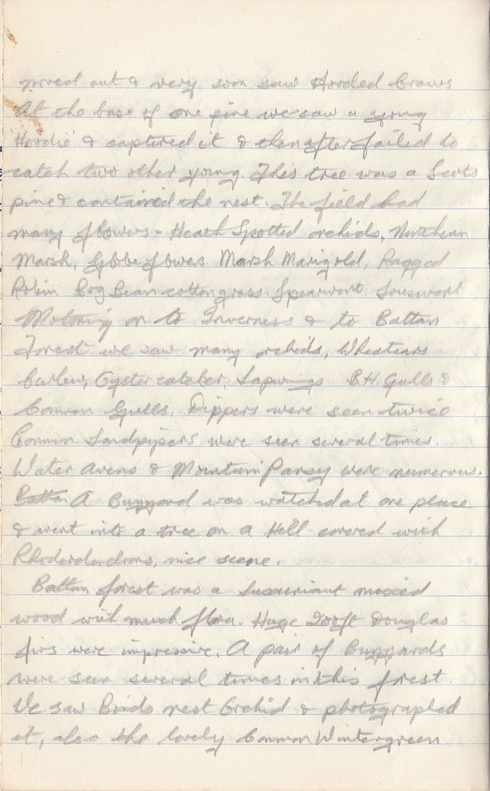 moved out & very soon saw Hooded Crows
At the base of one pine we saw a young
'Hoodie' & captured it & then after failed to
catch two other young. This tree was a Scots
pine & contained the nest. The field had
many flowers - Heath Spotted orchids, Northern
Marsh, Globe flower Marsh Marigold, Ragged
Robin Bog Bean cotton grass Spearwort Lousewort
Motoring on to Inverness & to Battan
Forest we saw many orchids, Wheatears
Curlew, Oyster catcher, Lapwings B.H. Gulls &
Common Gulls. Dippers were seen twice
Common Sandpipers were seen several times.
Water Avens & Mountain Pansy were numerous.
Battan A Buzzard was watched at one place
& went into a tree on a Hill covered with
Rhododendrons, nice scene.
Battan forest was a luxuriant mixed
wood with much flora. Huge 200ft Douglas
firs were impressive. A pair of Buzzards
were seen several times in this forest.
We saw Birds nest Orchid & photographed
it, also the lovely Common Wintergreen